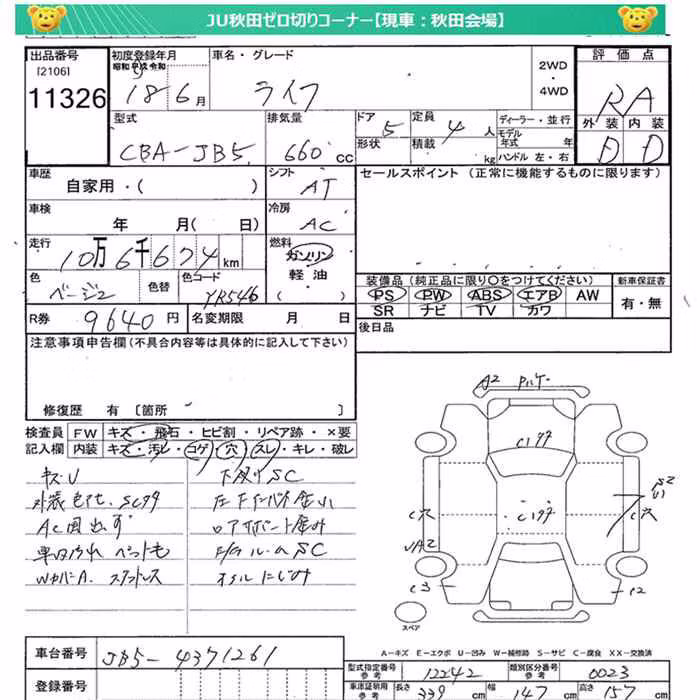 JU秋田ゼロ切りコーナー【現車：秋田会場】
出品番号
[2106]
11326
初度登録年月
昭和 平成 令和
18年6月
車名・グレード
ライフ
2WD
・
4WD
評価点
RA
外装 内装
D D
型式
CBA-JB5
排気量
660 cc
ドア
5
形状
定員
4 人
積載
kg
ディーラー・並行
モデル
年式 年
ハンドル 左・右
車歴
自家用・( )
シフト
AT
セールスポイント (正常に機能するものに限ります)
車検
年 月( 日)
冷房
AC
走行
10万6千674km
燃料
ガソリン
軽油
( )
色
ベージュ
色替
色コード
YR546
装備品(純正品に限り○をつけてください)
PS PW ABS エアB AW
SR ナビ TV カワ
新車保証書
有・無
R券
9640円
名変期限 月 日
後日品
注意事項申告欄(不具合内容等は具体的に記入して下さい)
修復歴 有 [箇所 ]
検査員
記入欄
FW キズ・飛石・ヒビ割・リペア跡・×要
内装 キズ・汚レ・コゲ・穴・スレ・キレ・破レ
キズU
下廻りSC
AC
SC
A2
C1サ
C1サ
C穴
C穴
S2
U1
UA2
C3
C2
スペア
A－キズ E－エクボ U－凹み W－補修跡 S－サビ C－腐食 XX－交換済
車台番号
JB5-4371261
登録番号
型式指定番号
参考
12242
類別区分番号
参考
0023
車庫証明用
参考
長さ
339 cm
幅
147 cm
高さ
157 cm